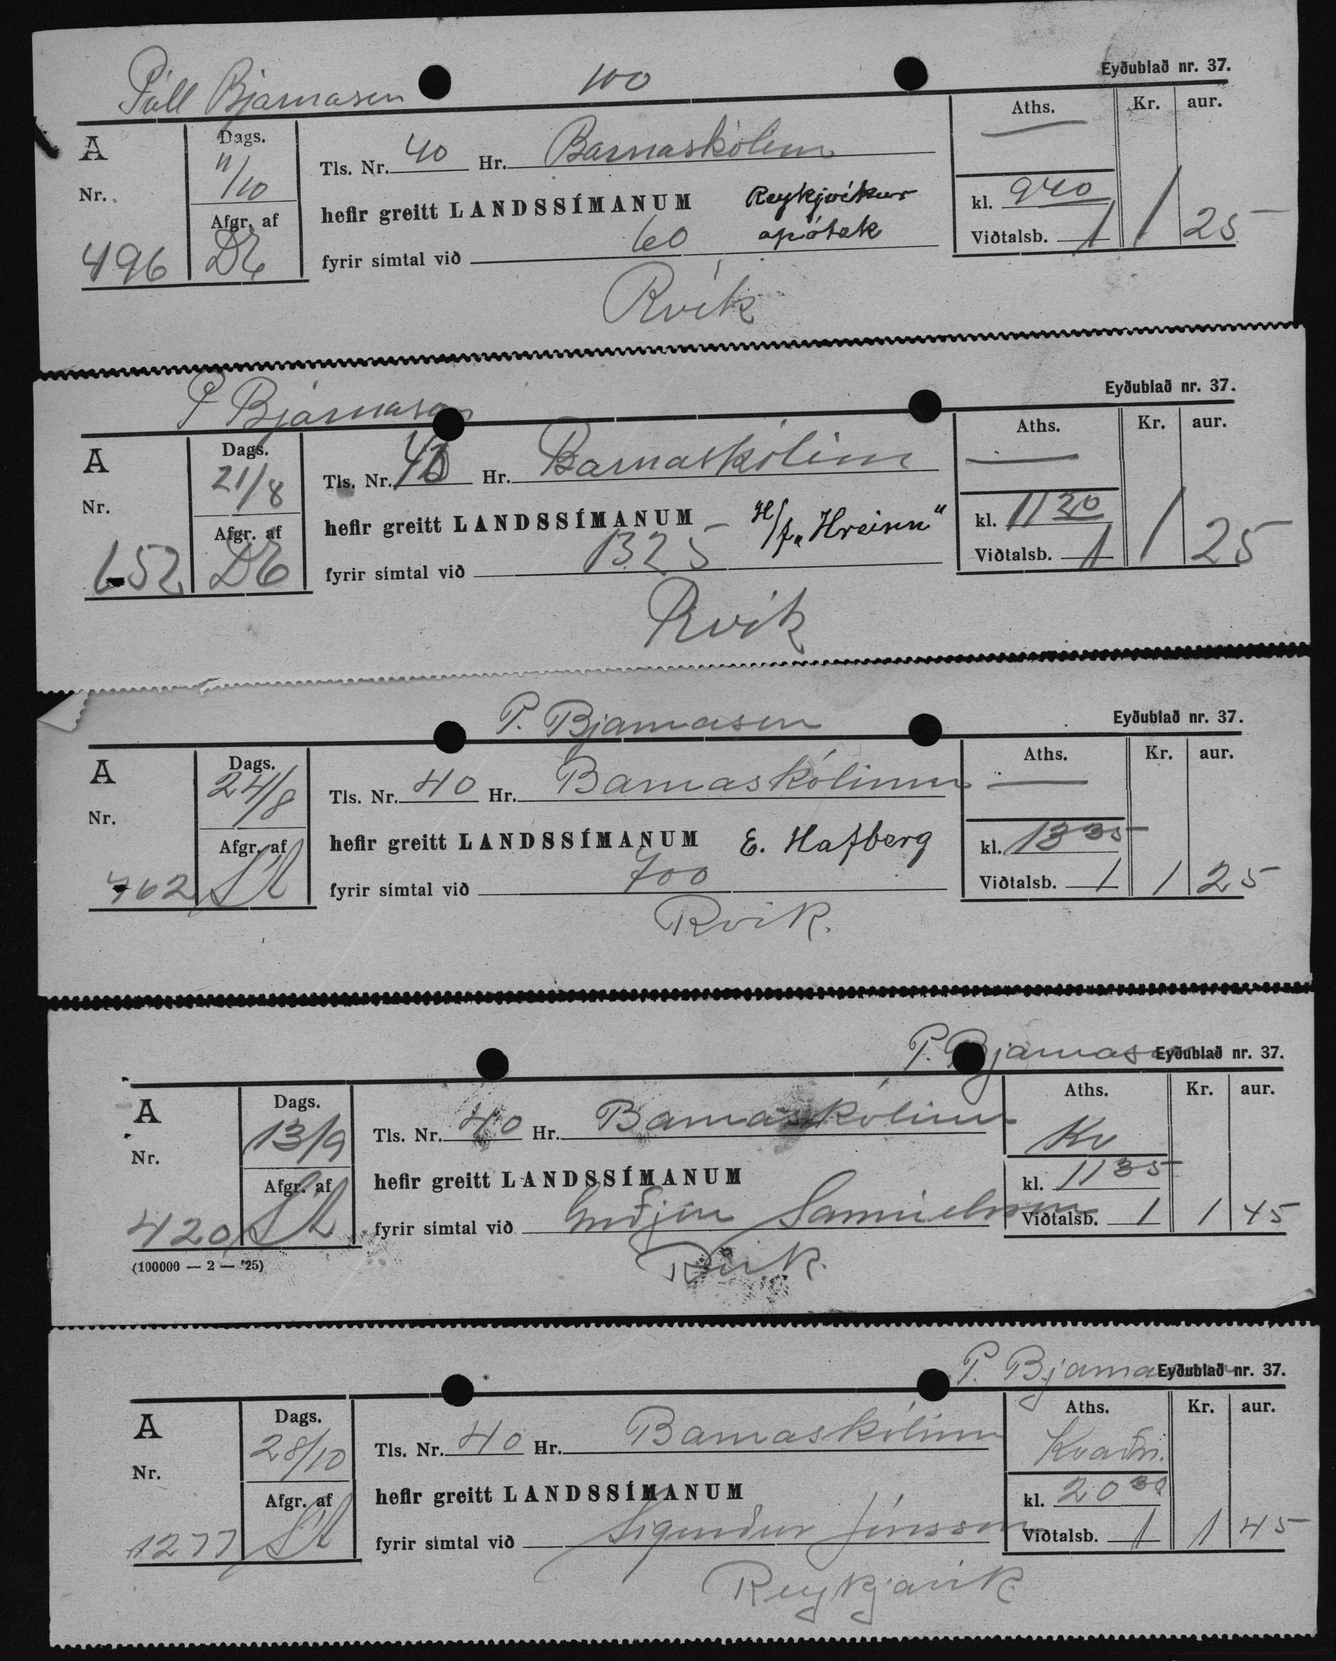 Páll Bjarnasen 100 Eyðublað nr. 37.
A Dags. Tls. Nr. 40 Hr. Barnaskólinn Aths. Kr. aur.
Nr. 11/10
496 Afgr. af hefir greitt LANDSSÍMANUM Reykjavíkur kl. 940
apótek
fyrir símtal við 60 Viðtalsb. 1 1 25
Rvík
P Bjarnason Eyðublað nr. 37.
A Dags. Tls. Nr. Hr. Barnaskólinn Aths. Kr. aur.
Nr. 21/8
652 Afgr. af hefir greitt LANDSSÍMANUM H/f „Hreinn“ kl. 1120
fyrir símtal við 1325 Viðtalsb. 1 1 25
Rvík
P. Bjarnasen Eyðublað nr. 37.
A Dags. Tls. Nr. 40 Hr. Barnaskólinn Aths. Kr. aur.
Nr. 24/8
762 Afgr. af hefir greitt LANDSSÍMANUM E. Hafberg kl. 1335
fyrir símtal við 700 Viðtalsb. 1 1 25
Rvik.
P. Bjarnason Eyðublað nr. 37.
A Dags. Tls. Nr. 40 Hr. Barnaskólinn Aths. Kr. aur.
Nr. 13/9 Kv
420 Afgr. af hefir greitt LANDSSÍMANUM kl. 1135
fyrir símtal við Guðjón Samúelsson Viðtalsb. 1 1 45
(100000 — 2 — '25) Rvik.
P. Bjarnason Eyðublað nr. 37.
A Dags. Tls. Nr. 40 Hr. Barnaskólinn Aths. Kr. aur.
Nr. 28/10 Kvaðn.
1277 Afgr. af hefir greitt LANDSSÍMANUM kl. 2030
fyrir símtal við Sigurður Jónsson Viðtalsb. 1 1 45
Reykjavik